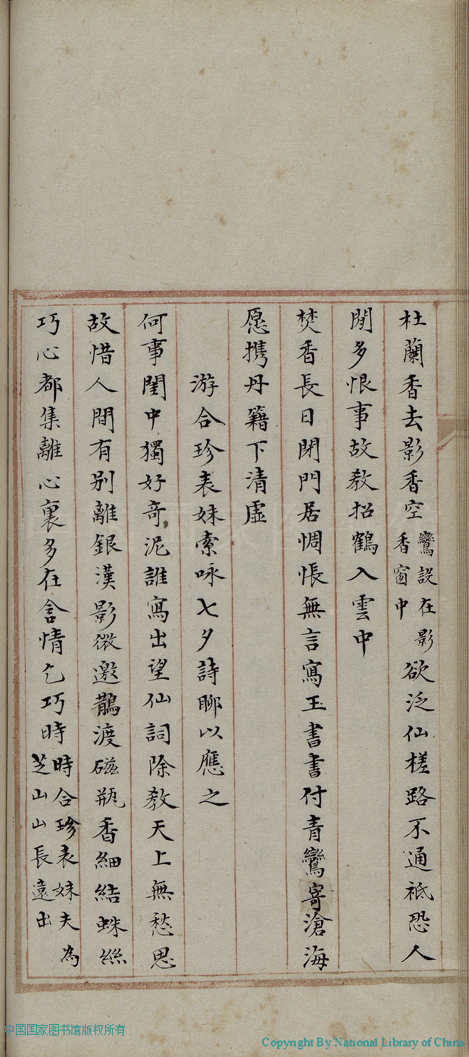 杜蘭香去影香空鸞設在影香窗中欲泛仙槎路不通祗恐人
間多恨事故教招鶴入雲中
焚香長日閉門居惆悵無言寫玉書書付青鸞寄滄海
愿携丹籍下清虛
游合珍表妹索咏七夕詩聊以應之
何事閨中獨好奇泥誰寫出望仙詞除教天上無愁思
故惜人間有别離銀漢影微邀鵲渡磁瓶香細結蛛絲
巧心都集離心裏多在含情乞巧時時合珍表妹夫為芝山山長遠出
中国国家图书馆版权所有
Copyright By National Library of China